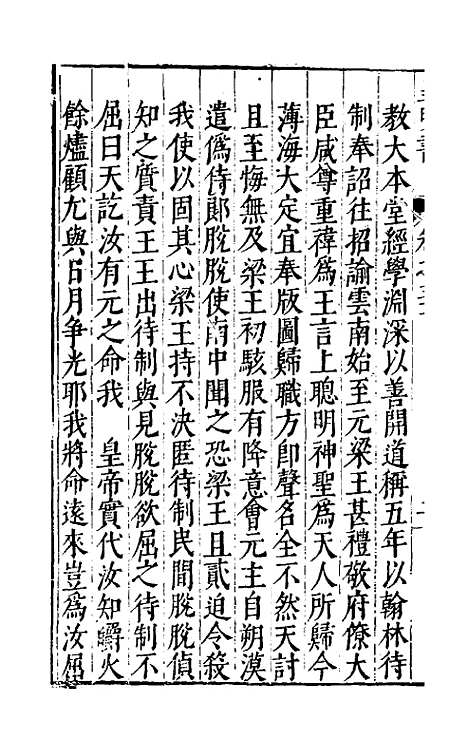 教大本堂經學淵深以善開道稱五年以翰林待
制奉詔往招諭雲南始至元梁王甚禮敬府僚大
臣咸尊重禕爲王言上聰明神聖爲天人所歸今
薄海大定宜奉版圖歸職方卽聲名全不然天討
且至悔無及梁王初駭服有降意會元主自朔漠
遣僞侍郞脫脫使南中聞之恐梁王且貳迫令殺
我使以固其心梁王持不決匿待制民間脫脫偵
知之實責王王出待制與見脫脫欲屈之待制不
屈曰天訖汝有元之命我　皇帝實代汝知爝火
餘燼顧尤與日月爭光耶我將命遠來豈爲汝屈